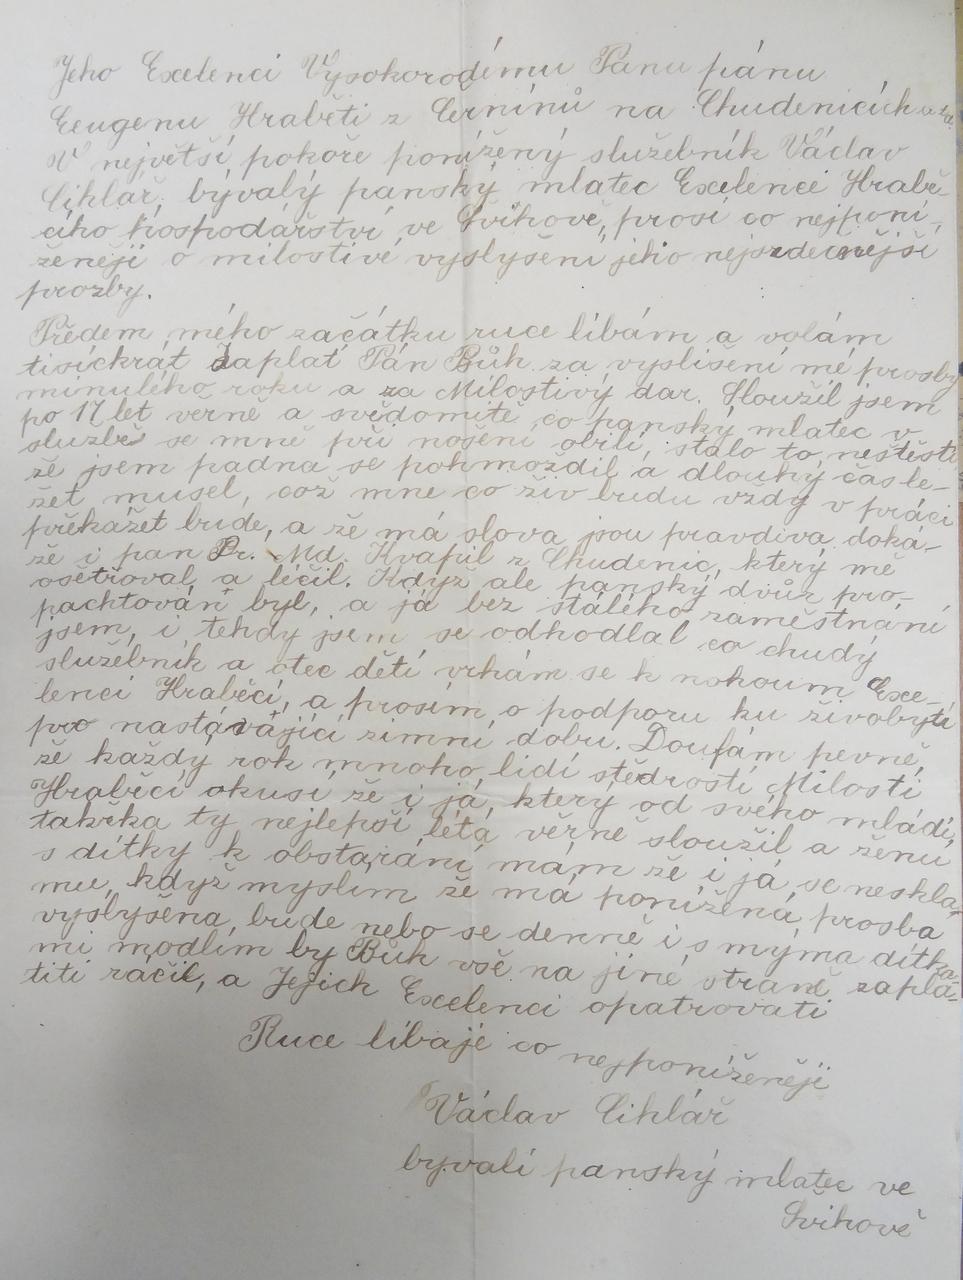 Jeho Excelenci Vysokorodímu Pánu pánu
Eeugenu Hraběti z Černínů na Chudenicích
V největší pokoře ponížený služebník Václav
Cihlář, bývalý panský mlatec Excelenci Hrabě-
cího hospodářství ve Švihově, prosí co nejponí-
ženěji o milostivé vyslyšení jeho nejsrdečnější
prozby.
Předem mého začátku ruce líbám a volám
tisíckrát zaplať Pán Bůh za vyslisení mé prosby
minulého roku a za Milostivý dar. Sloužil jsem
po 17 let věrně a svědomitě co panský mlatec v
službě se mně při nošení obilí, stalo to neštěstí
že jsem padna se pohmoždil a dlouhý čas le-
žet musel, což mne co živ budu vzdy v práci
překážet bude, a že má slova jsou pravdiva doká-
že i pan Dr. Md. Kvapil z Chudenic, který mě
ošetřoval a léčil. Když ale panský dvůr pro-
pachtován byl, a já bez stálého zaměstnání
jsem, i tehdy jsem se odhodlal co chudý
služebník a otec dětí vrhám se k nohoum Exce-
lenci Hraběcí, a prosím o podporu ku živobytí
pro nastávající zimní dobu. Doufám pevně,
že každý rok mnoho lidí stědrostí Milosti
Hraběcí okusí že i já, který od svého mládí,
takřka ty nejlepší létá věrně sloužil a ženu
s dítky k obstarání mám že i já se neskla-
mu, když myslím že má ponížená prosba
vyslyšena bude nebo se denně i s mýma dítka-
mi modlím by Bůh vše na jiné straně zaplá-
titi ráčil, a Jejich Excelenci opatrovati
Ruce líbaje co nejponíženěji
Václav Cihlář
byvalí panský mlatec ve
Švihově